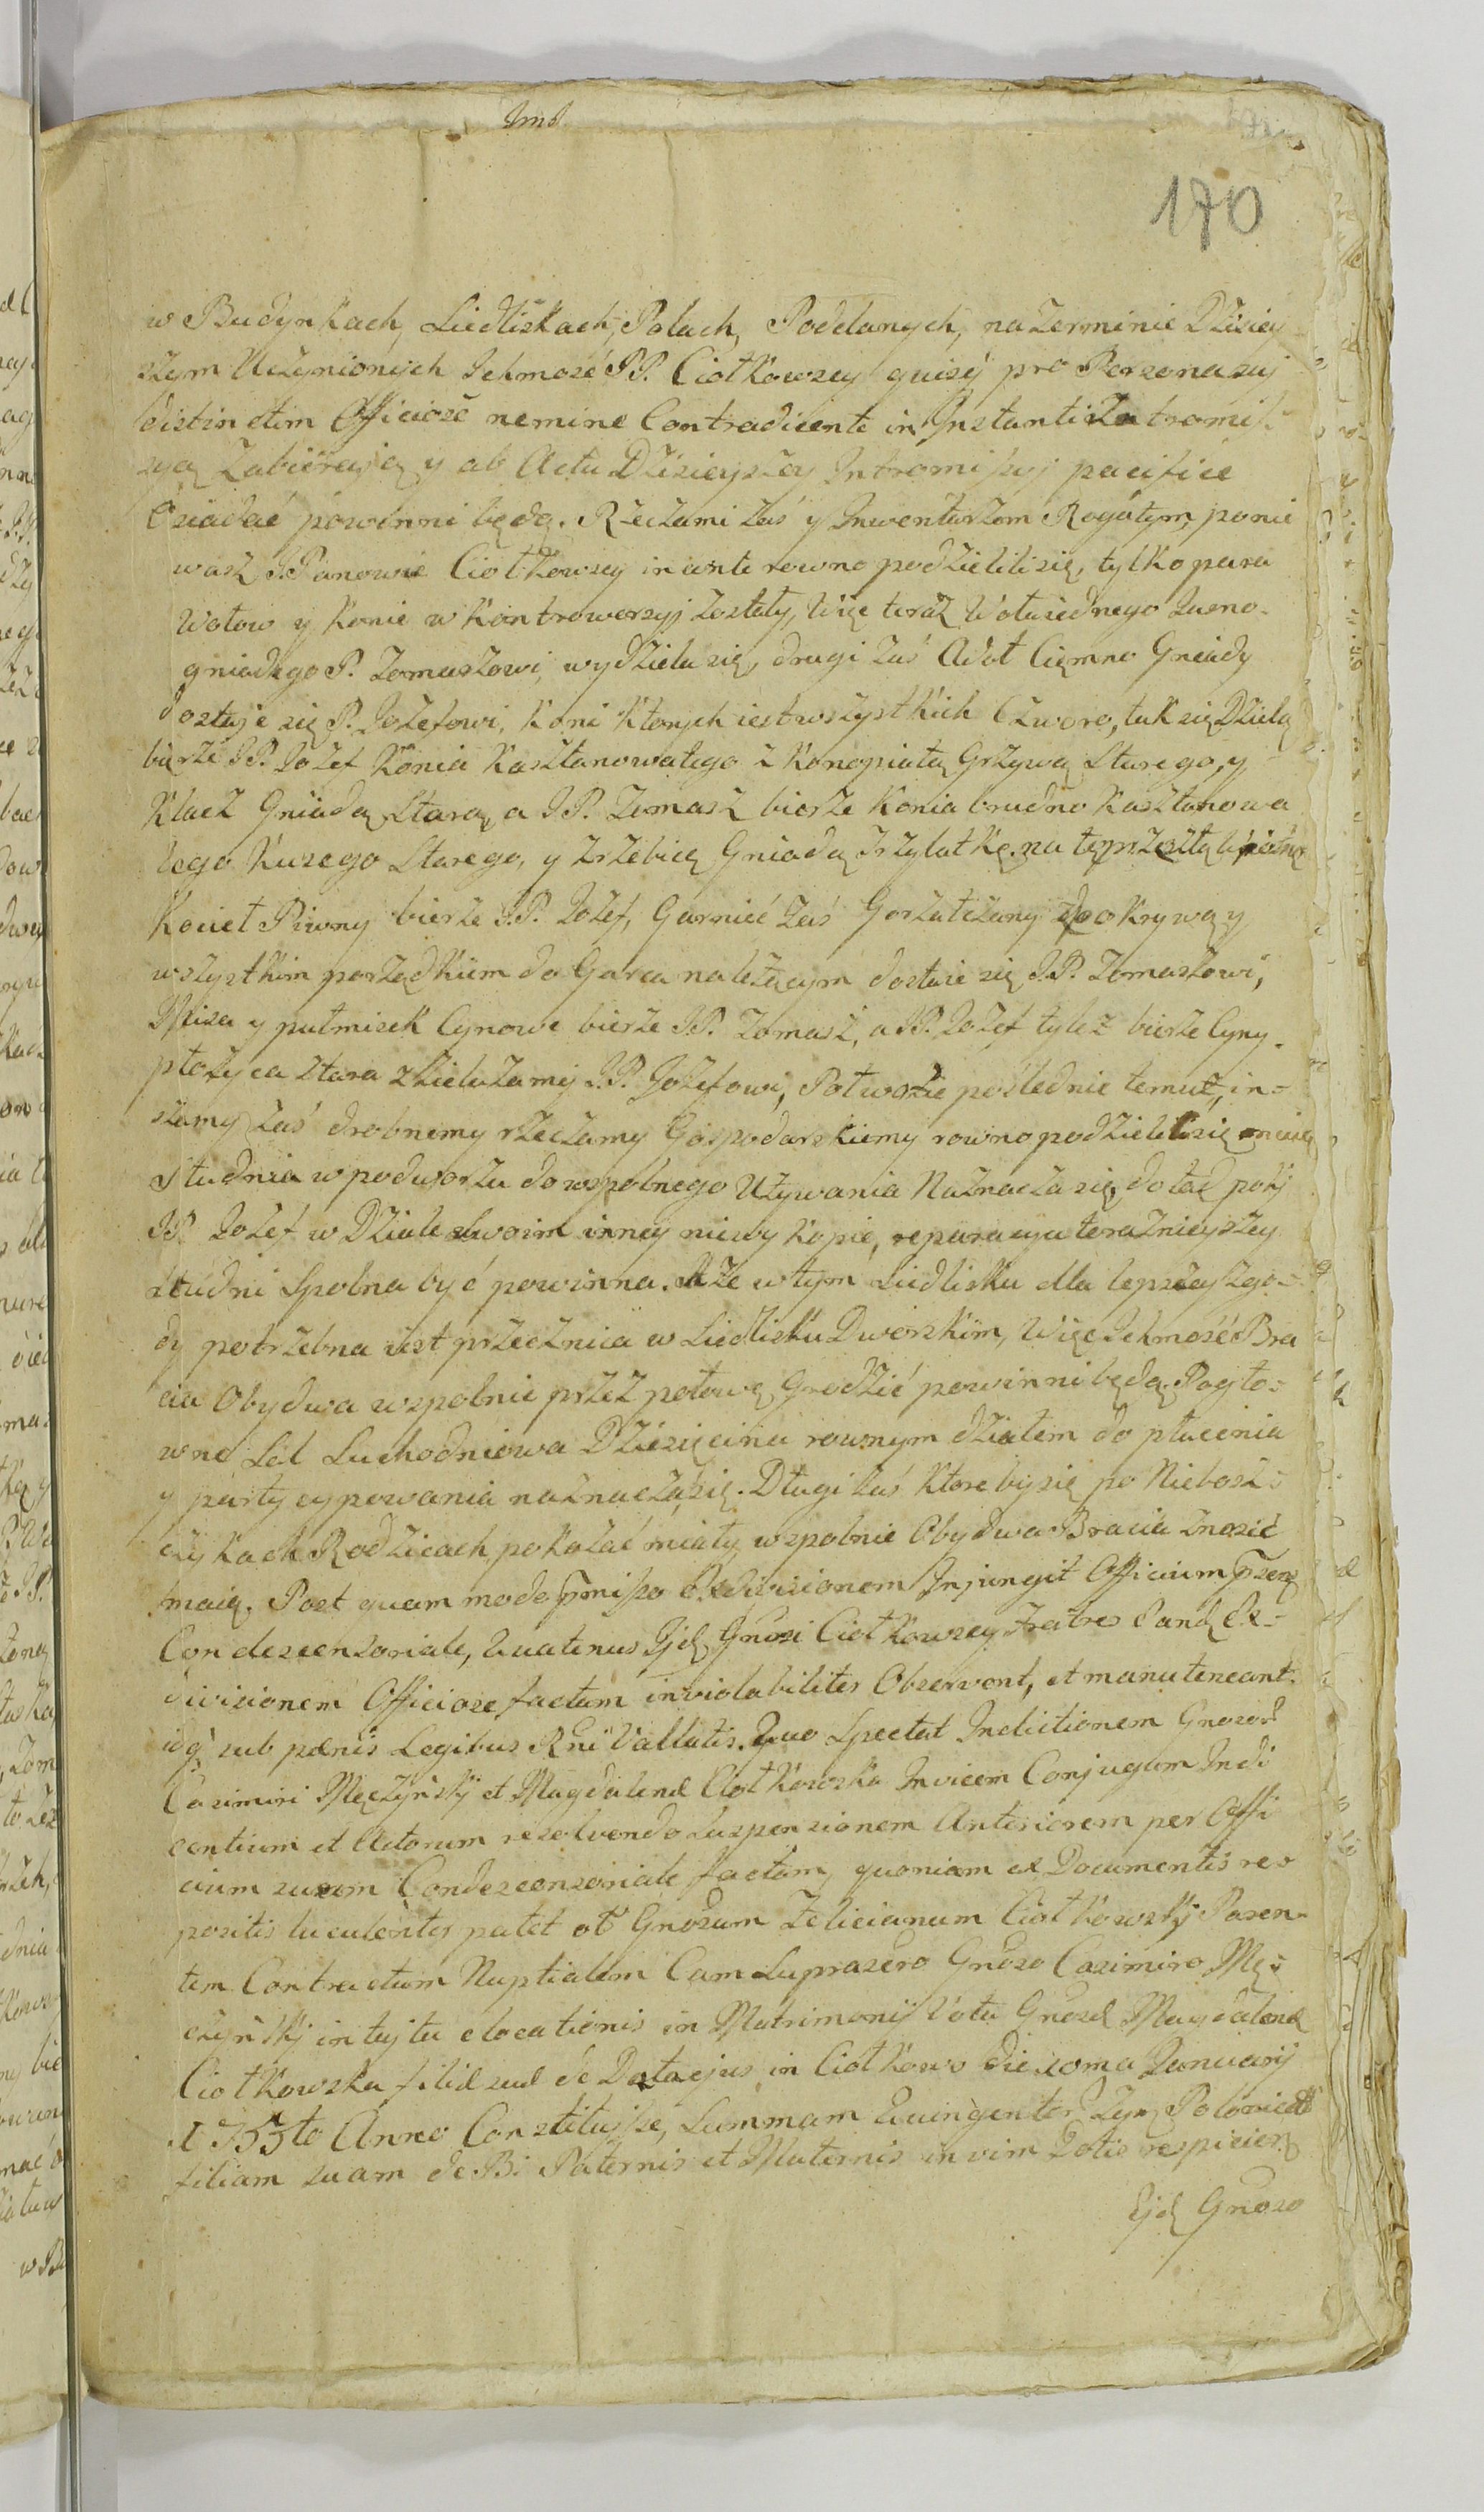 170
w Budynkach, Siedliskach, Polach, Podelanych, na terminie Dzisiey
szym Uczynionych Ichmość PP. Ciołkowscy quisq pro Persona sui
distinctim Officiose nemine Contradicente in Instanti Intromis
syą Zabieraią y ab Actu Dzisieyszey Intromissyi pacifice
Osiadać powinni będą. Rzeczami zaś y Inwentarzem Rogatym, ponie
wasz PPanowie Ciołkowscy in ante rowno podzielili się, tylko para
Wołow y Konie w Kontrowersyi zostały, Więc teraz Wołu iednego Jasno-
gniadego P. Tomaszowi, wydziela się, drugi zaś Woł Ciemno Gniady
dostaje się P. Jozefowi, Koni Ktorych iest wszystkich Czworo, tak się Dzielą
bierze JP. Jozef Konia Kasztanowatego z Konopiatą Grzywą Starego, y
Klacz Gniadą Starą, a JP. Tomasz bierze Konia brudno Kasztanowa
tego Kusego Starego, y Zrzebicę Gniadą Trzylatkę. na tę przeszłą
Kocieł Piwny bierze JP. Jozef, Garniec zaś Gorzałczany z Pokrywą y
wszystkim porządkiem do Garca należącym dostaie się JP. Tomaszowi,
Misa y pułmisek Cynowe bierze JP. Tomasz, a JP. Jozef tylez bierze Cyny.
płożyca stara z Zielazamy JP. Jozefowi, Połwozie poslednie temuz, in-
szamy zaś drobnemy rzeczamy Gospodarskiemy rowno podzielili się
Studnia w podworzu do wspolnego Używania Naznacza się, dotąd poky
JP Jozef w Dziale swoim inney niewykopie, reparacya teraznieyszey
studni Spolna być powinna. A ze w tym siedlisku dla lepszey zgo-
dy potrzebna iest przecznica w Siedlisku Dworskim, Więc Ichmość Bra
cia Obydwa wspolnie przez połowę Grodzić powinni będą. Pogło-
wne Suchodniowa Dziesięcina rownym działem do płacenia
y partycypowania naznacza się. Długi zaś ktoreby się po Niebosz-
czykach Rodzicach pokazać miały, wspolnie Obydwa Bracia znosić
maią. Post quam modo pmisso Exdivisionem Injungit Officium pñs
Condescensoriale, Quatenus Gñosi Ciołkowscy Fratres Eand Ex-
divisionem Officiose factam inviolabiliter Observent, et manuteneant.
idq sub pœnis Legibus Rñi Vallatis. Quo Spectat Indictionem Gnosor
Casimiri Męczyński et Magdalenæ Ciołkowska Invicem Conjugum Indi
centium et Actorum resolvendo Suspensionem Anteriorem per Offi
cium suum Condescensoriale factam, quoniam ex Documentis re
positis luculenter patet ob Gnosum Felicianum Ciołkowskÿ Paren-
tem Contractum Nuptialem Cum Suprascro Gnoso Casimiro Mę-
czyński intuitu elocationis in Matrimonij Votu Gnosæ Magdalenæ
Ciołkowska filiæ suæ de Data ejus in Ciołkowo die 10ma Januarÿ
1753to Anno Constituisse, Summam Quingentor Polonical
filiam suam de Bis Paternis et Maternis in vim Dotis respicien
Ejd Gnoso